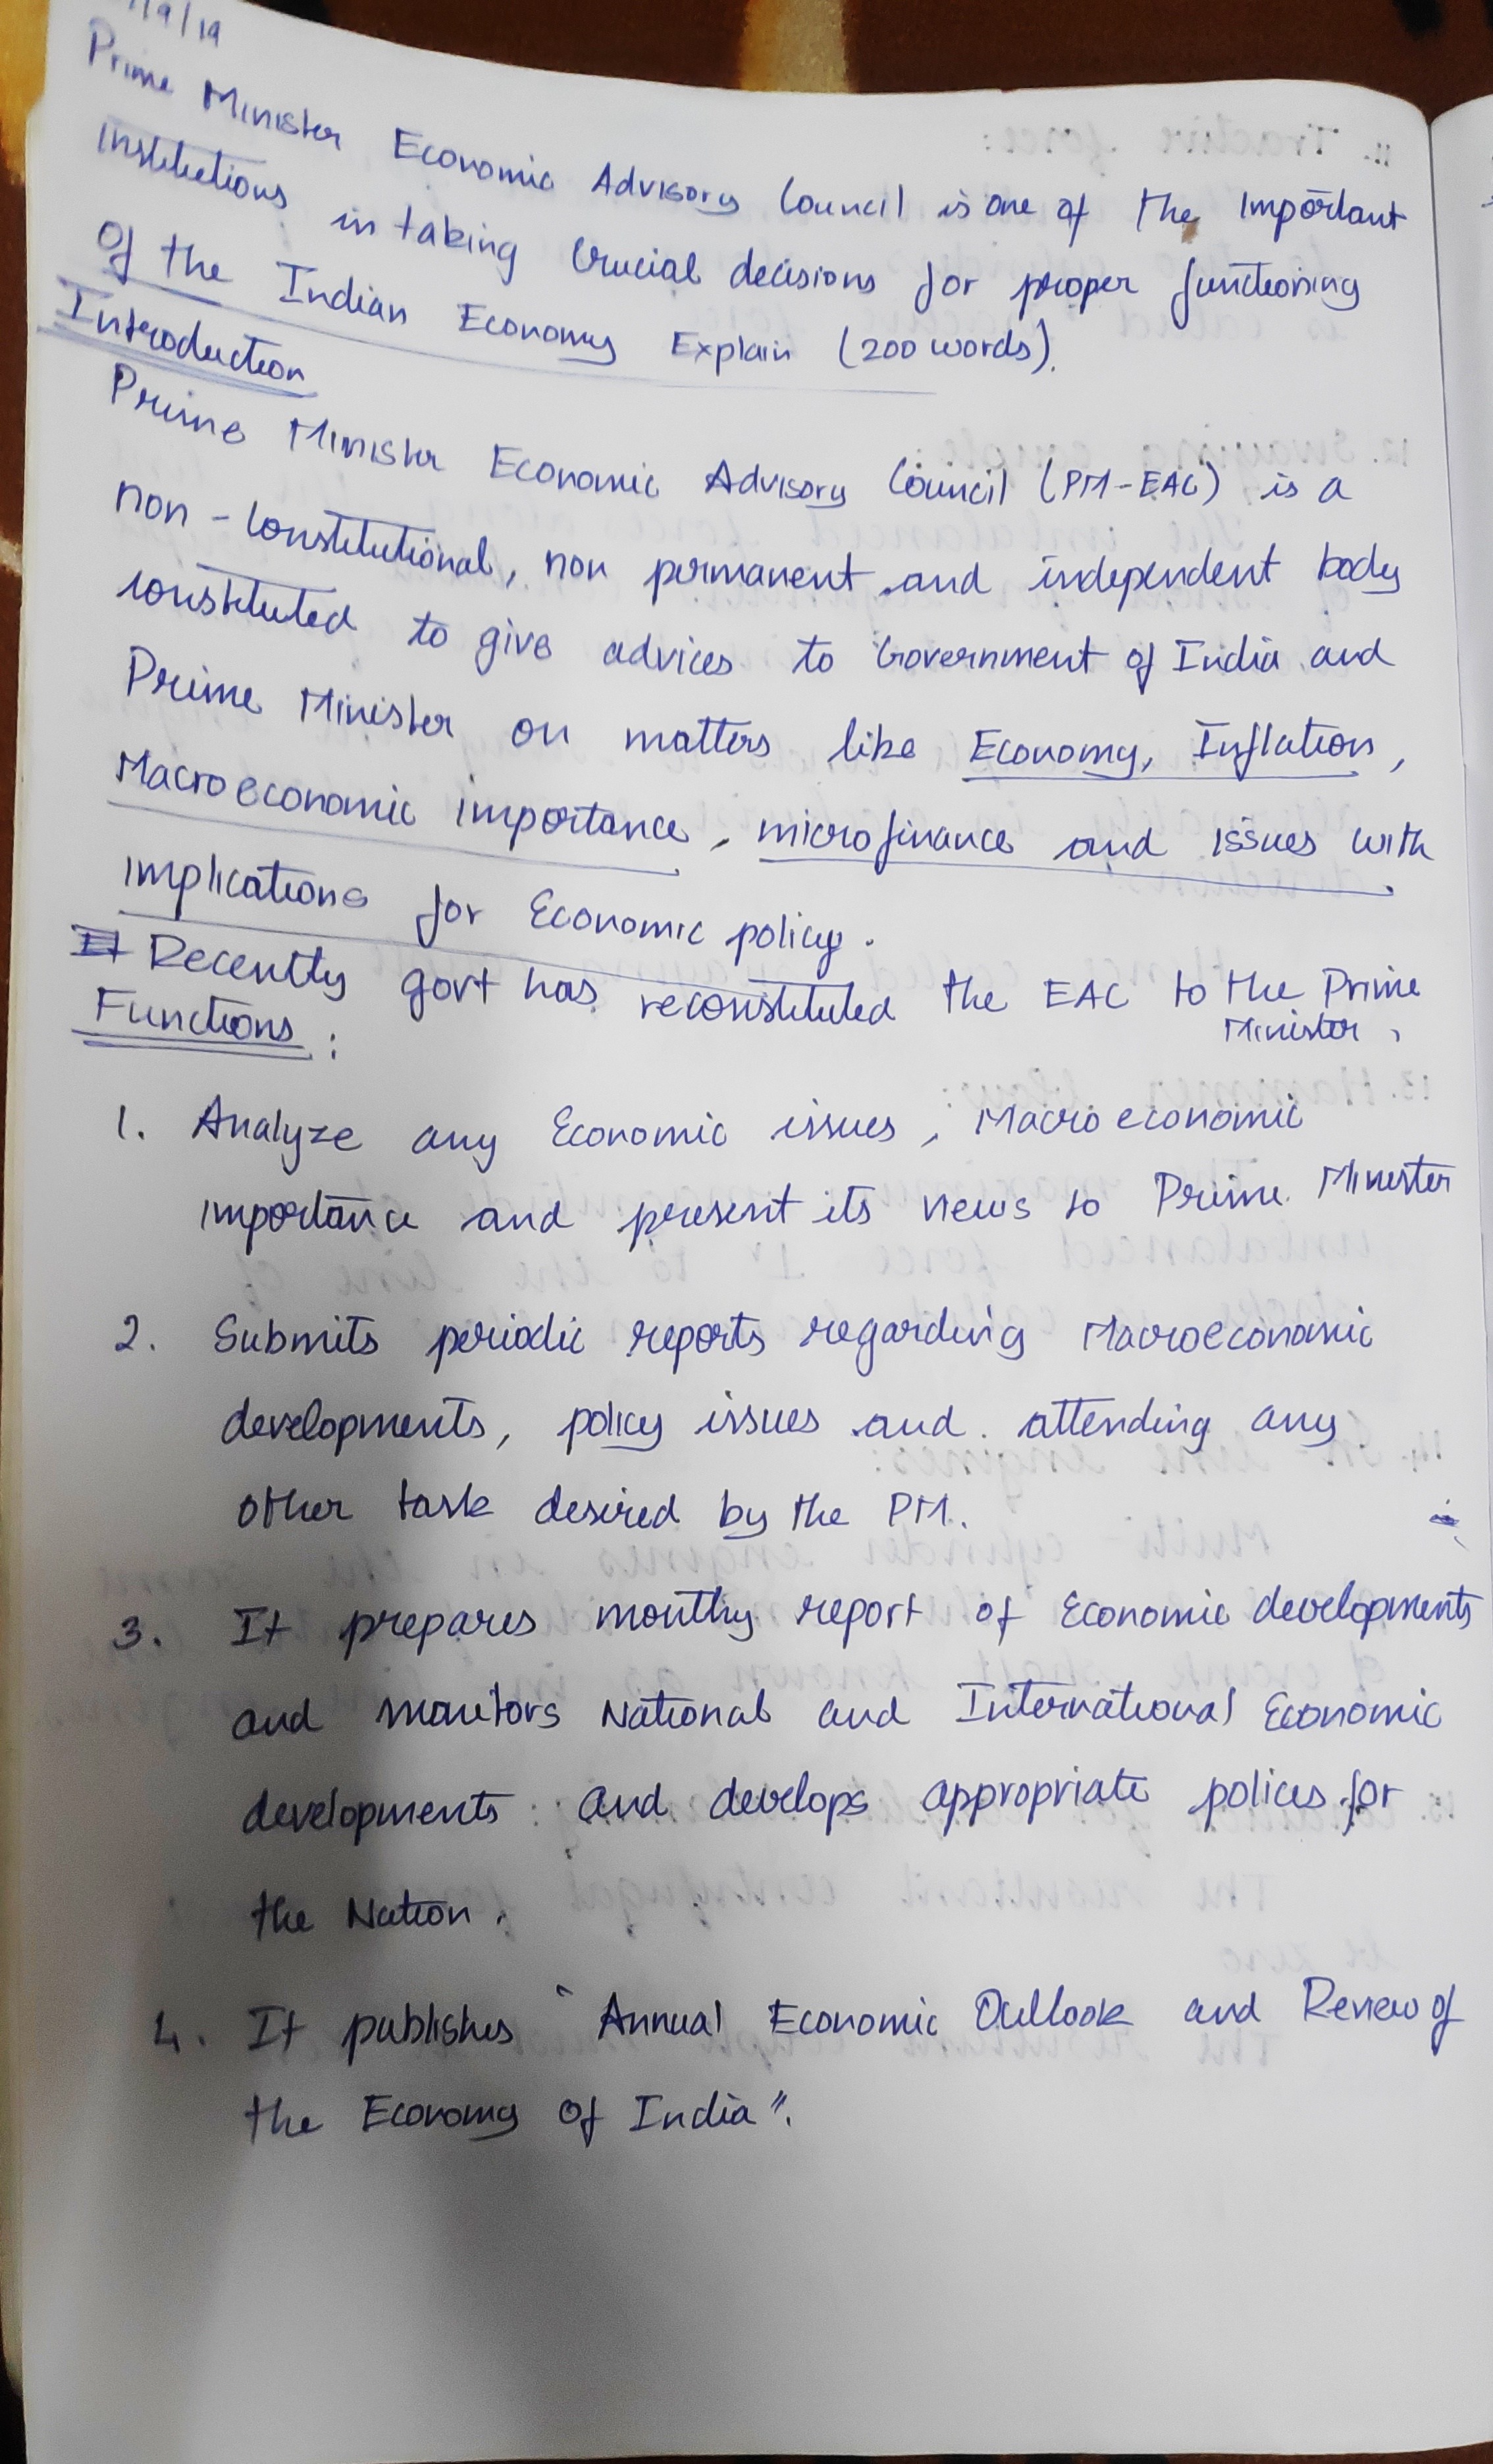 /9/19
Prime Minister Economic Advisory Council is one of the important
institutions in taking crucial decisions for proper functioning
of the Indian Economy Explain (200 words).
Introduction
Prime Minister Economic Advisory Council (PM-EAC) is a
non-constitutional, non permanent and independent body
constituted to give advices to Government of India and
Prime Minister on matters like Economy, Inflation,
Macroeconomic importance, microfinance and issues with
implications for Economic policy.
Recently govt has reconstituted the EAC to the Prime
Minister.
Functions:
1. Analyze any Economic issues, Macroeconomic
importance and present its views to Prime Minister
2. Submits periodic reports regarding Macroeconomic
developments, policy issues and attending any
other task desired by the PM.
3. It prepares monthy report of Economic developments
and monitors National and International Economic
developments and develops appropriate polices for
the Nation.
4. It publishes "Annual Economic Outlook and Review of
the Economy of India".